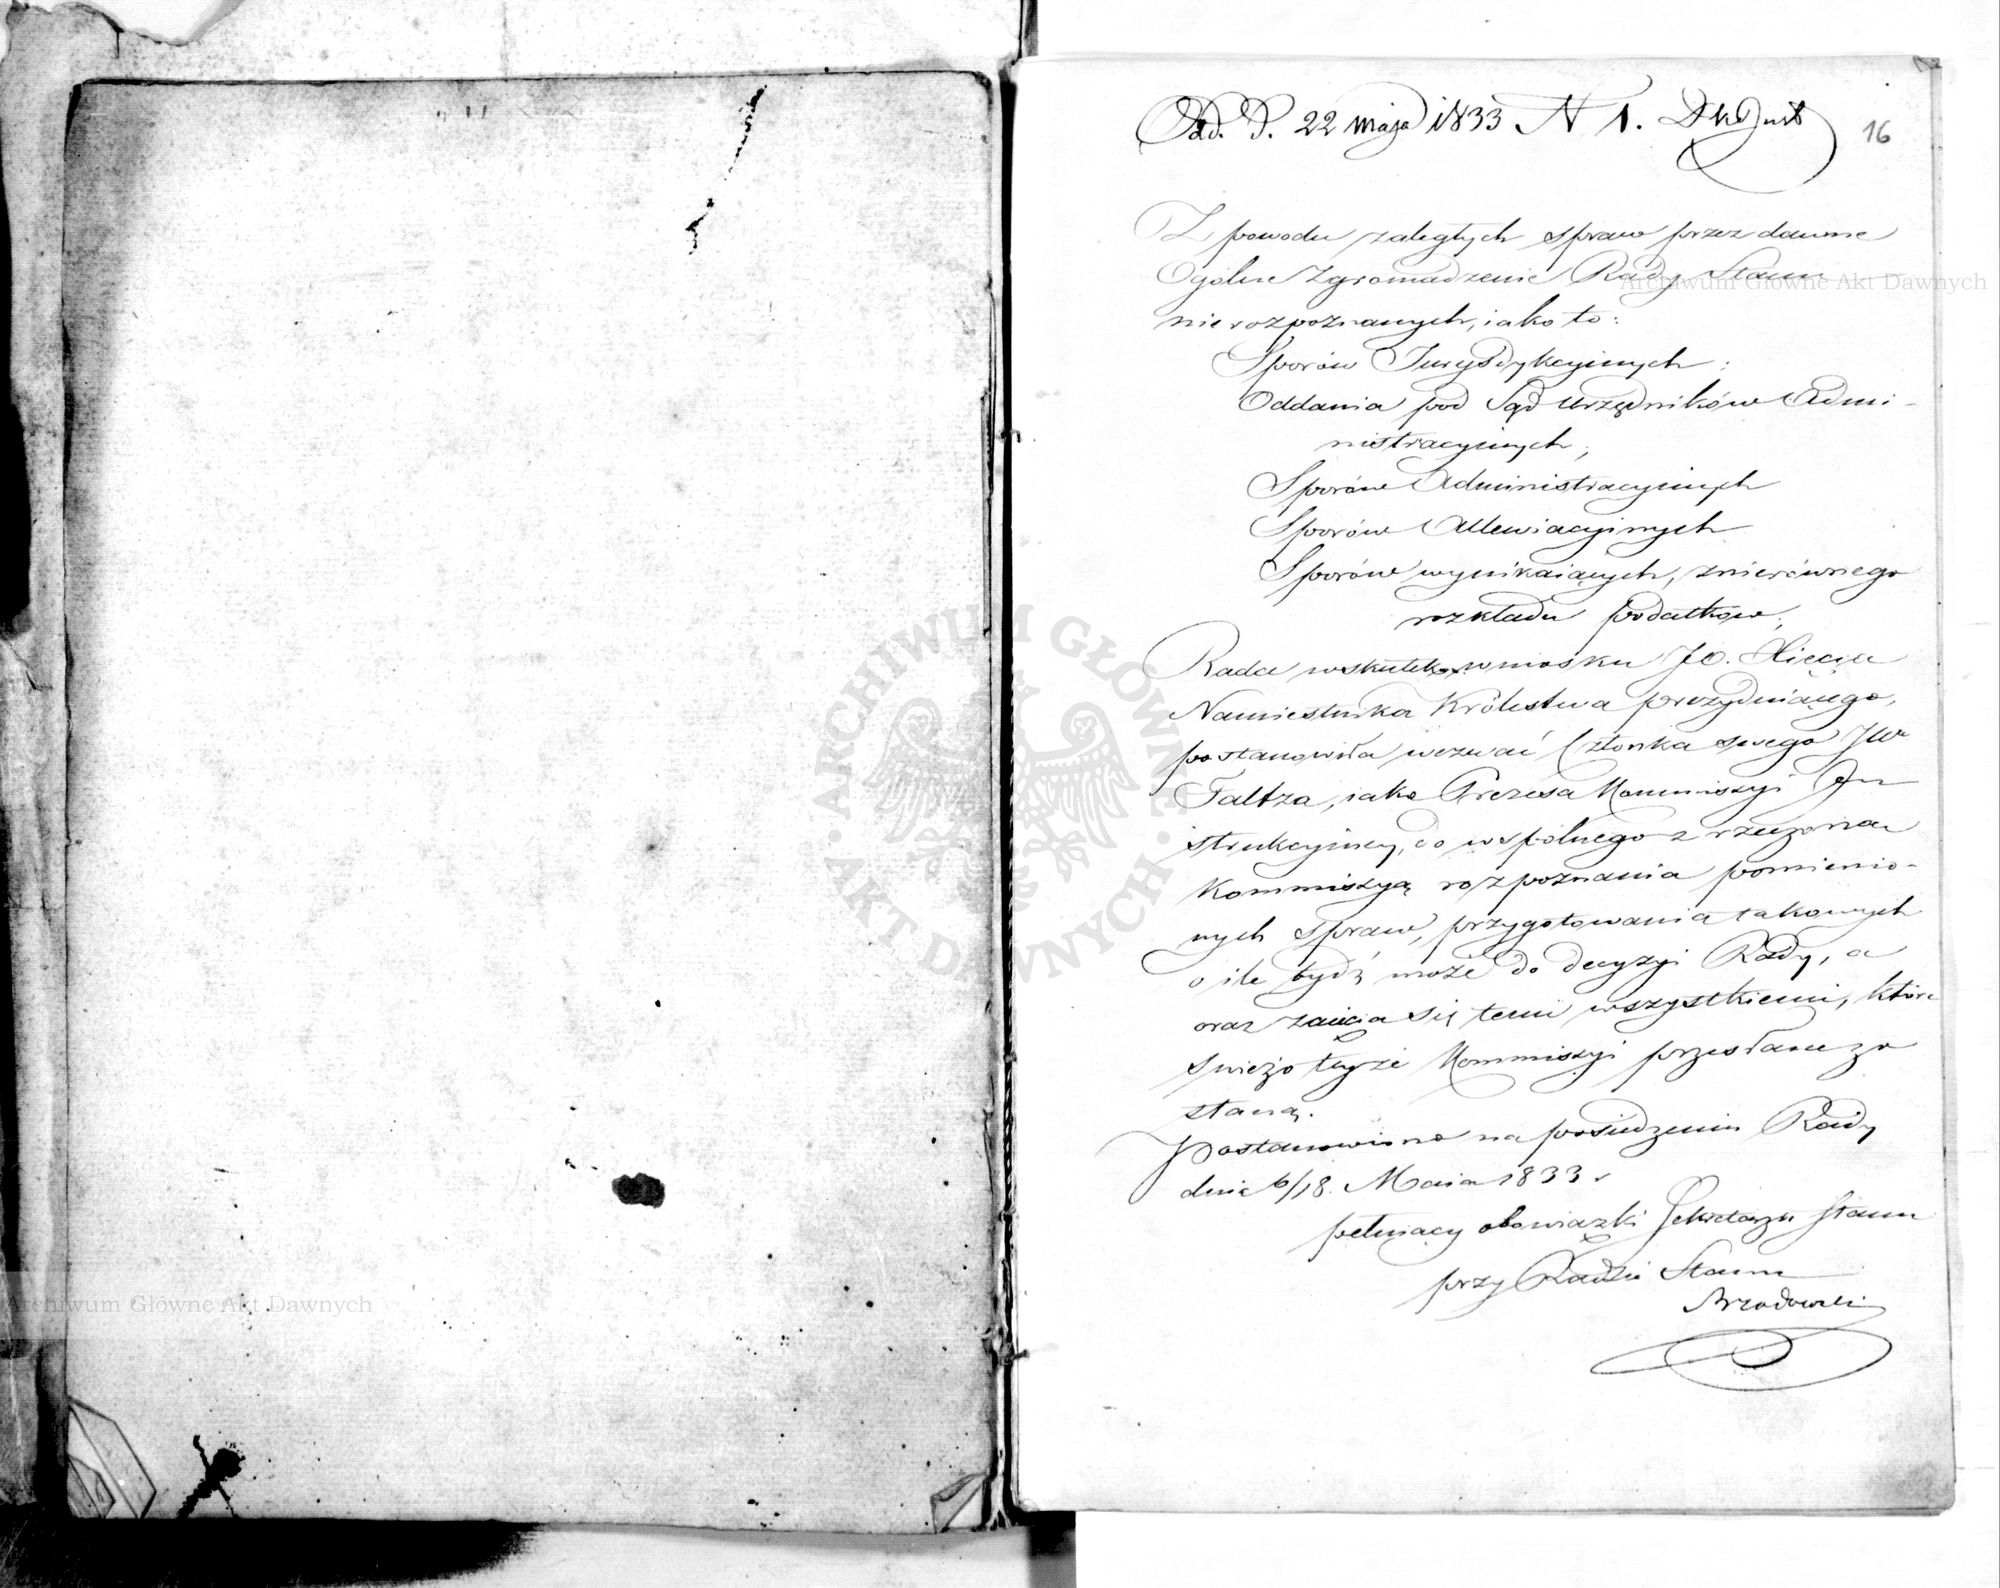 Pad. D. 22 maja 1833 N 1.
16
Z powodu zaległych spraw przez dawne
Ogólne Zgromadzenie Rady Stanu
nierozpoznanych, iako to:
Sporów Jurysdykcyinych:
Oddania pod Sąd Urzędników Admi-
nistracyinych;
Sporów Administracyinych
Sporów Allewiacyinych
Sporów wynikaiących, z nierównego
rozkładu podatków;
Rada wskutek wniosku JO. Xięcia
Namiestnika Królestwa prezyduiącego,
postanowiła wezwać Członka swego JW
Faltza, iako Prezesa Kommissyi In
strukcyiney, do wspólnego z rzeczoną
Kommissyą rozpoznania pomienio-
nych spraw, przygotowania takowych
o ile bydź może do decyzyi Rady, a
oraz zaięcia się temi wszystkiemi, które
świeżo teyże Kommissyi przesłane zo
staną.
Postanowiono na posiedzeniu Rady
dnia 6/18. Maia 1833 r
pełniący obowiązki Sekretarza Stanu
przy Radzie Stanu
Brzozowski
Archiwum Główne Akt Dawnych
Archiwum Główne Akt Dawnych
ARCHIWUM GŁÓWNE · AKT DAWNYCH ·